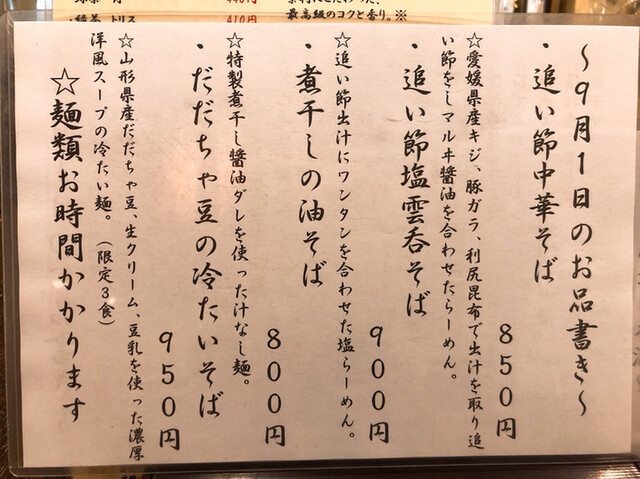 ～９月１日のお品書き～
・追い節中華そば
８５０円
☆愛媛県産キジ、豚ガラ、利尻昆布で出汁を取り追
い節をしマルヰ醤油を合わせたらーめん。
・追い節塩雲呑そば
９００円
☆追い節出汁にワンタンを合わせた塩らーめん。
・煮干しの油そば
８００円
☆特製煮干し醤油ダレを使った汁なし麺。
・だだちゃ豆の冷たいそば
９５０円
☆山形県産だだちゃ豆、生クリーム、豆乳を使った濃厚
洋風スープの冷たい麺。（限定３食）
☆麺類お時間かかります
440円
トリス
410円
最高級のコクと香り。※